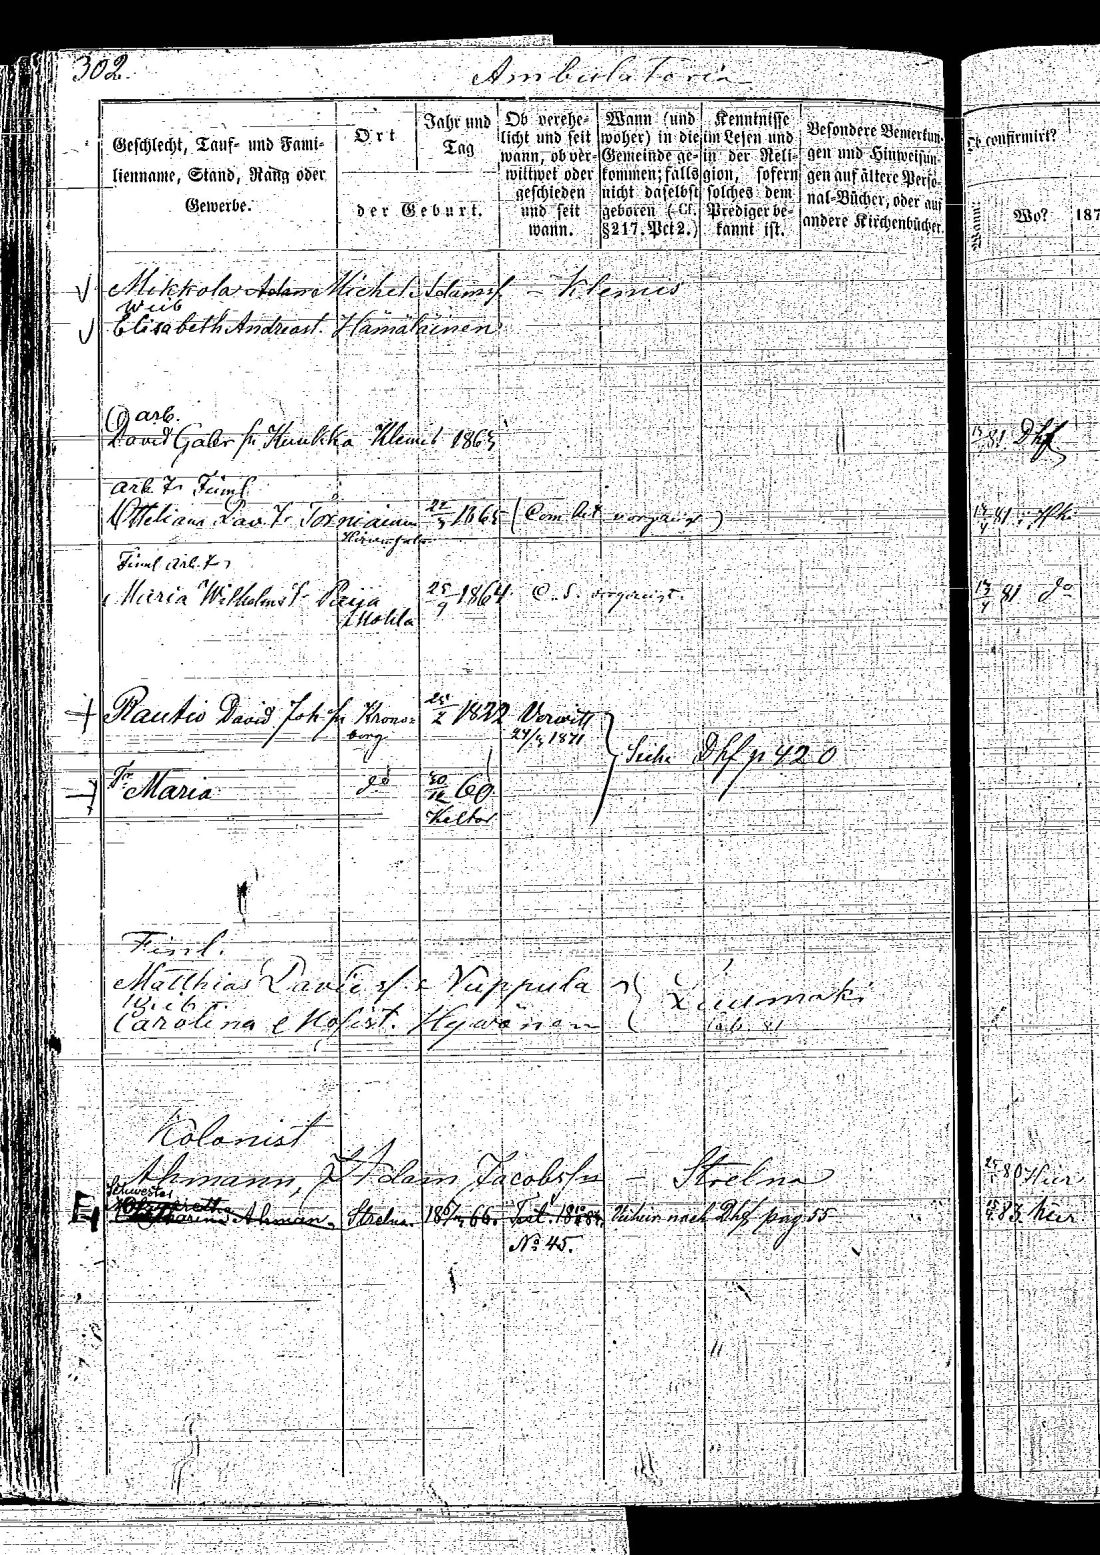 302.
Ambulatoria
Geschlecht, Tauf- und Fami-
lienname, Stand, Rang oder
Gewerbe.
Ort
Jahr und
Tag
der Geburt.
Ob verehe-
licht und seit
wann, ob ver-
wittwet oder
geschieden
und seit
wann.
Wann (und
woher) in die
Gemeinde ge-
kommen; falls
nicht daselbst
geboren (Cf.
§217. Pct 2.)
Kenntnisse
im Lesen und
in der Reli-
gion, sofern
solches dem
Prediger be-
kannt ist.
Besondere Bemerkun-
gen und Hinweisun-
gen auf ältere Perso-
nal-Bücher, oder auf
andere Kirchenbücher.
Ob confirmirt?
Wann?
Wo?
187
Mikkola Adam Michel Adamsf. – Klemis
Weib
Elisabeth Andreast. Hämäläinen
arb.
David Gabr. fn Kuukka Klemis 1863
81 Dhf
arb. Tr Finnl.
Ottiliana Dav. Tr Törniäinen 1865
81
Finnl. arb. Tr
Maria Wilhelms Tr Paija 25/9 1864 C. S. vorgezeigt.
Mohla
17/4 81 do
Rautio David Joh. fn Krono-
borg
1822 Verwitt
1871
Siehe Dhf p 420
Tr Maria do 30/12 60
Keltos
Finnl.
Matthias Davids f. Vuppula
Weib
Carolina Mosist. Hywönen
Kolonist
Ahmann, Adam Jacobsfn – Strelna
80 Hier
Schwester
Margaretha
Catharina Ahman. Strelna. 66. No 45. nach Dhf pag 55
83. hier